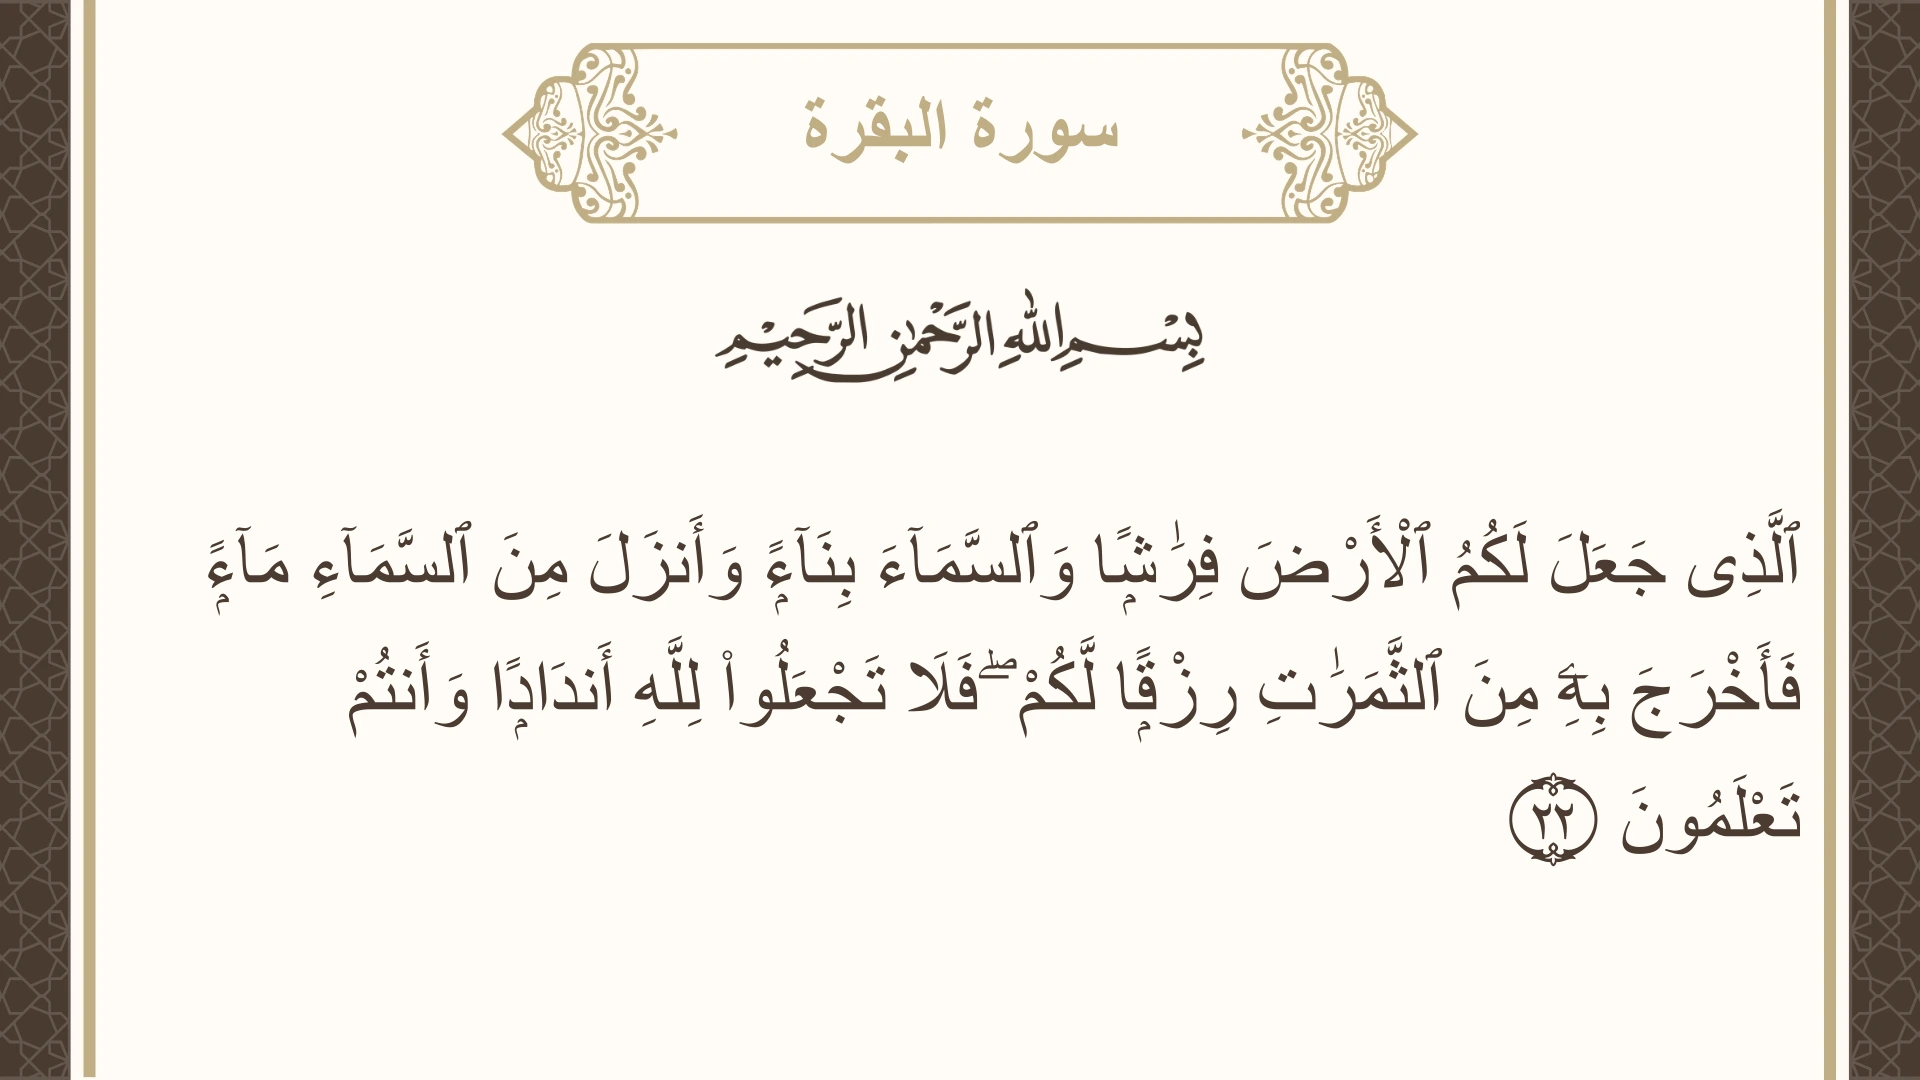 سورة البقرة
بِسْمِ اللهِ الرَّحْمٰنِ الرَّحِيْمِ
ٱلَّذِى جَعَلَ لَكُمُ ٱلْأَرْضَ فِرَٰشًۭا وَٱلسَّمَآءَ بِنَآءًۭ وَأَنزَلَ مِنَ ٱلسَّمَآءِ مَآءًۭ
فَأَخْرَجَ بِهِۦ مِنَ ٱلثَّمَرَٰتِ رِزْقًۭا لَّكُمْ ۖ فَلَا تَجْعَلُوا۟ لِلَّهِ أَندَادًۭا وَأَنتُمْ
تَعْلَمُونَ ٢٢